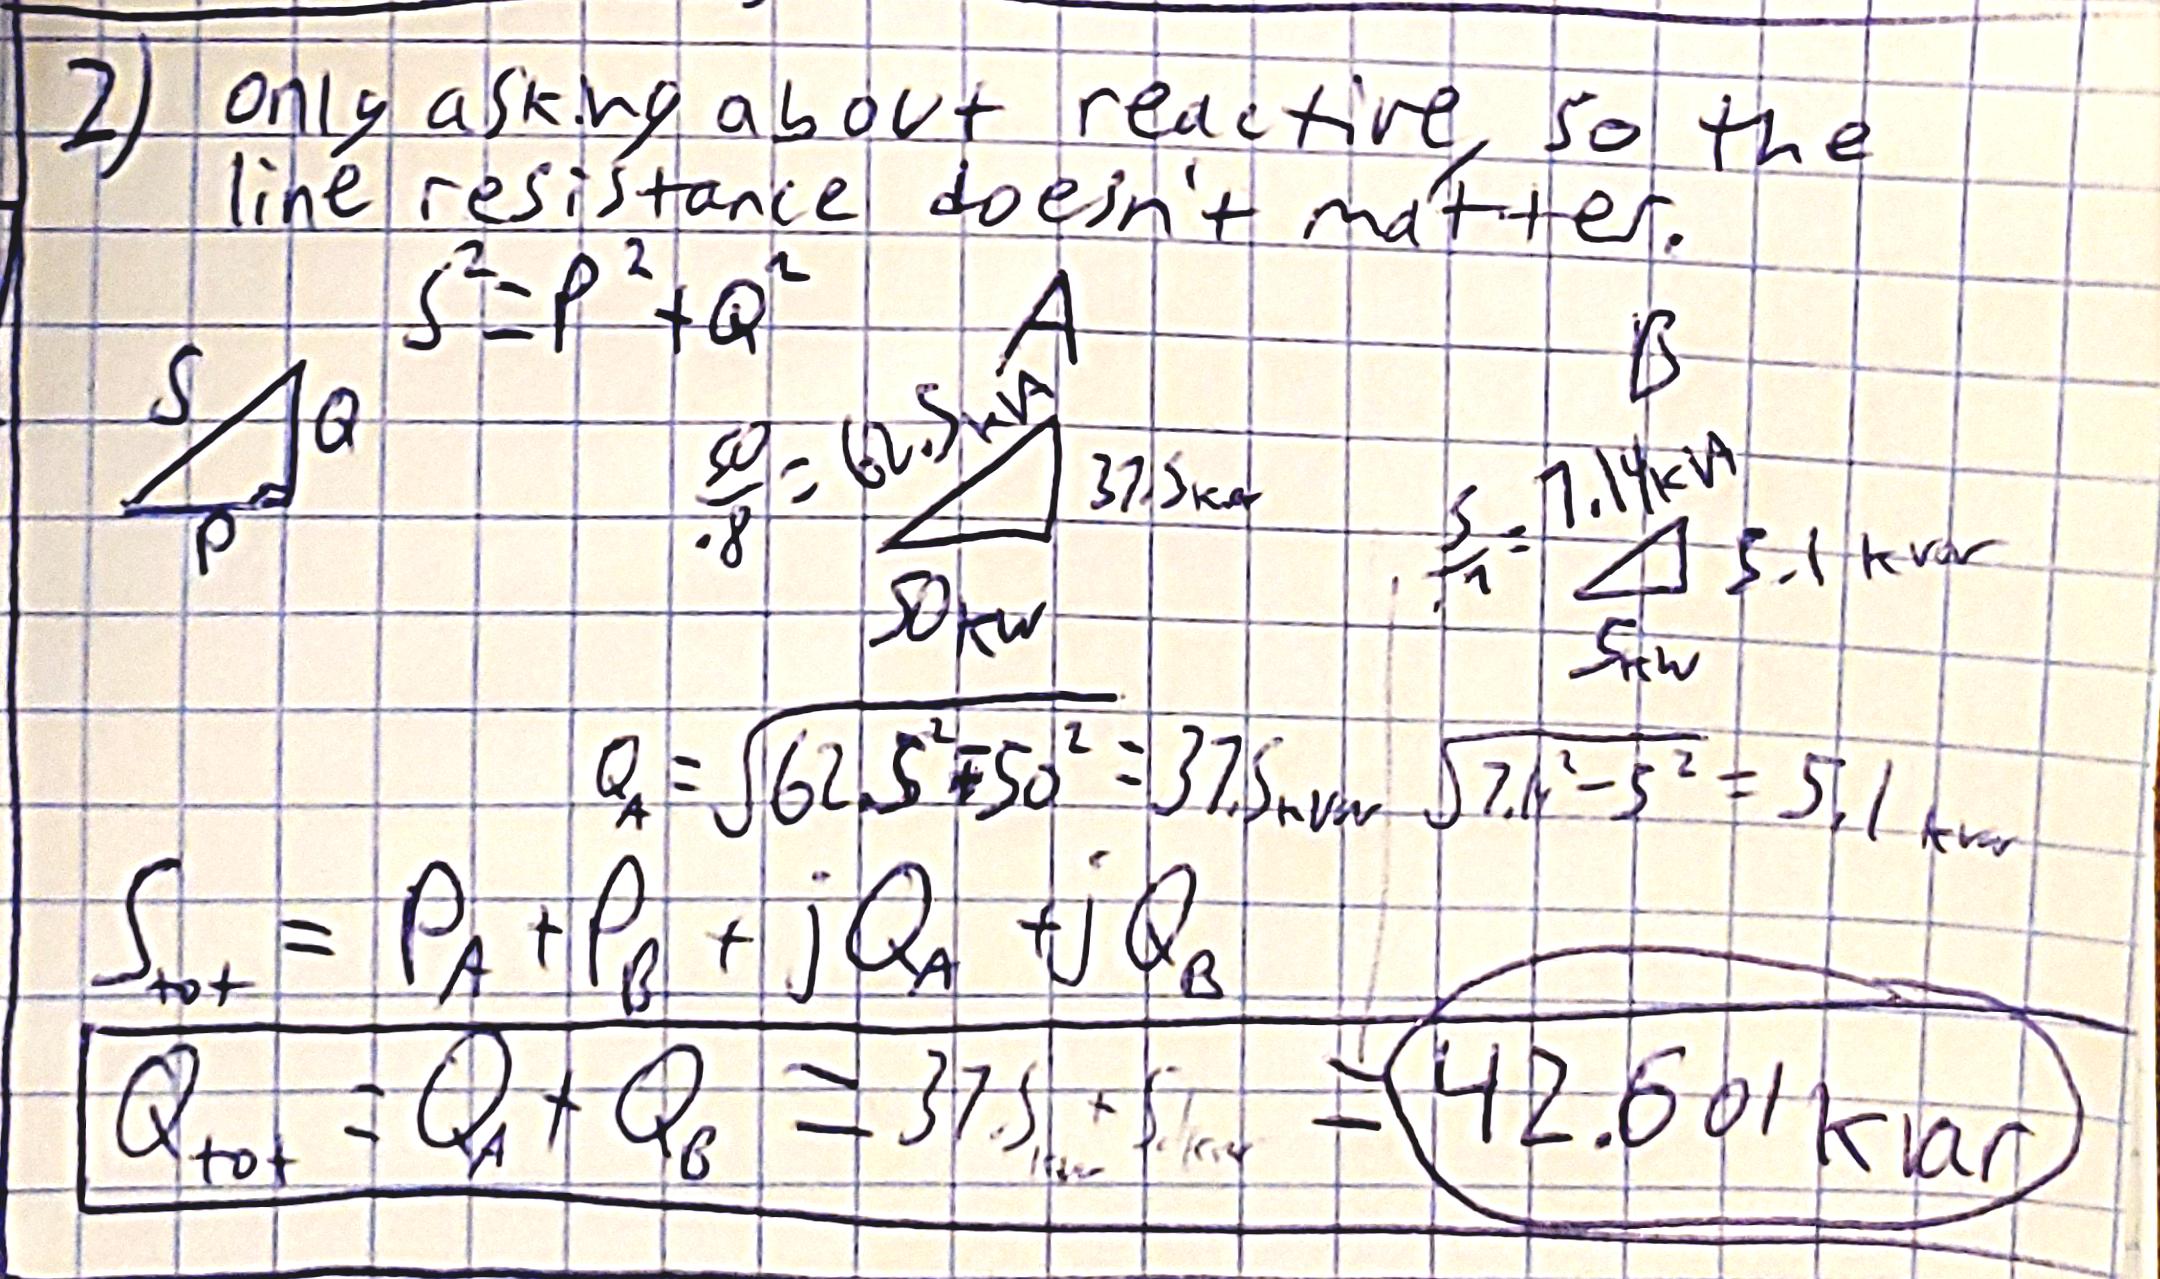 2) only asking about reactive, so the
line resistance doesn't matter.
S² = P² + Q²
A
B
S
Q
P
50/.8 = 62.5 kVA
37.5 kvar
50 kW
5/.7 = 7.14 kVA
5.1 kvar
5 kW
Q_A = √(62.5² - 50²) = 37.5 kvar
√(7.14² - 5²) = 5.1 kvar
S_tot = P_A + P_B + jQ_A + jQ_B
Q_tot = Q_A + Q_B = 37.5 kvar + 5.1 kvar = 42.601 kvar